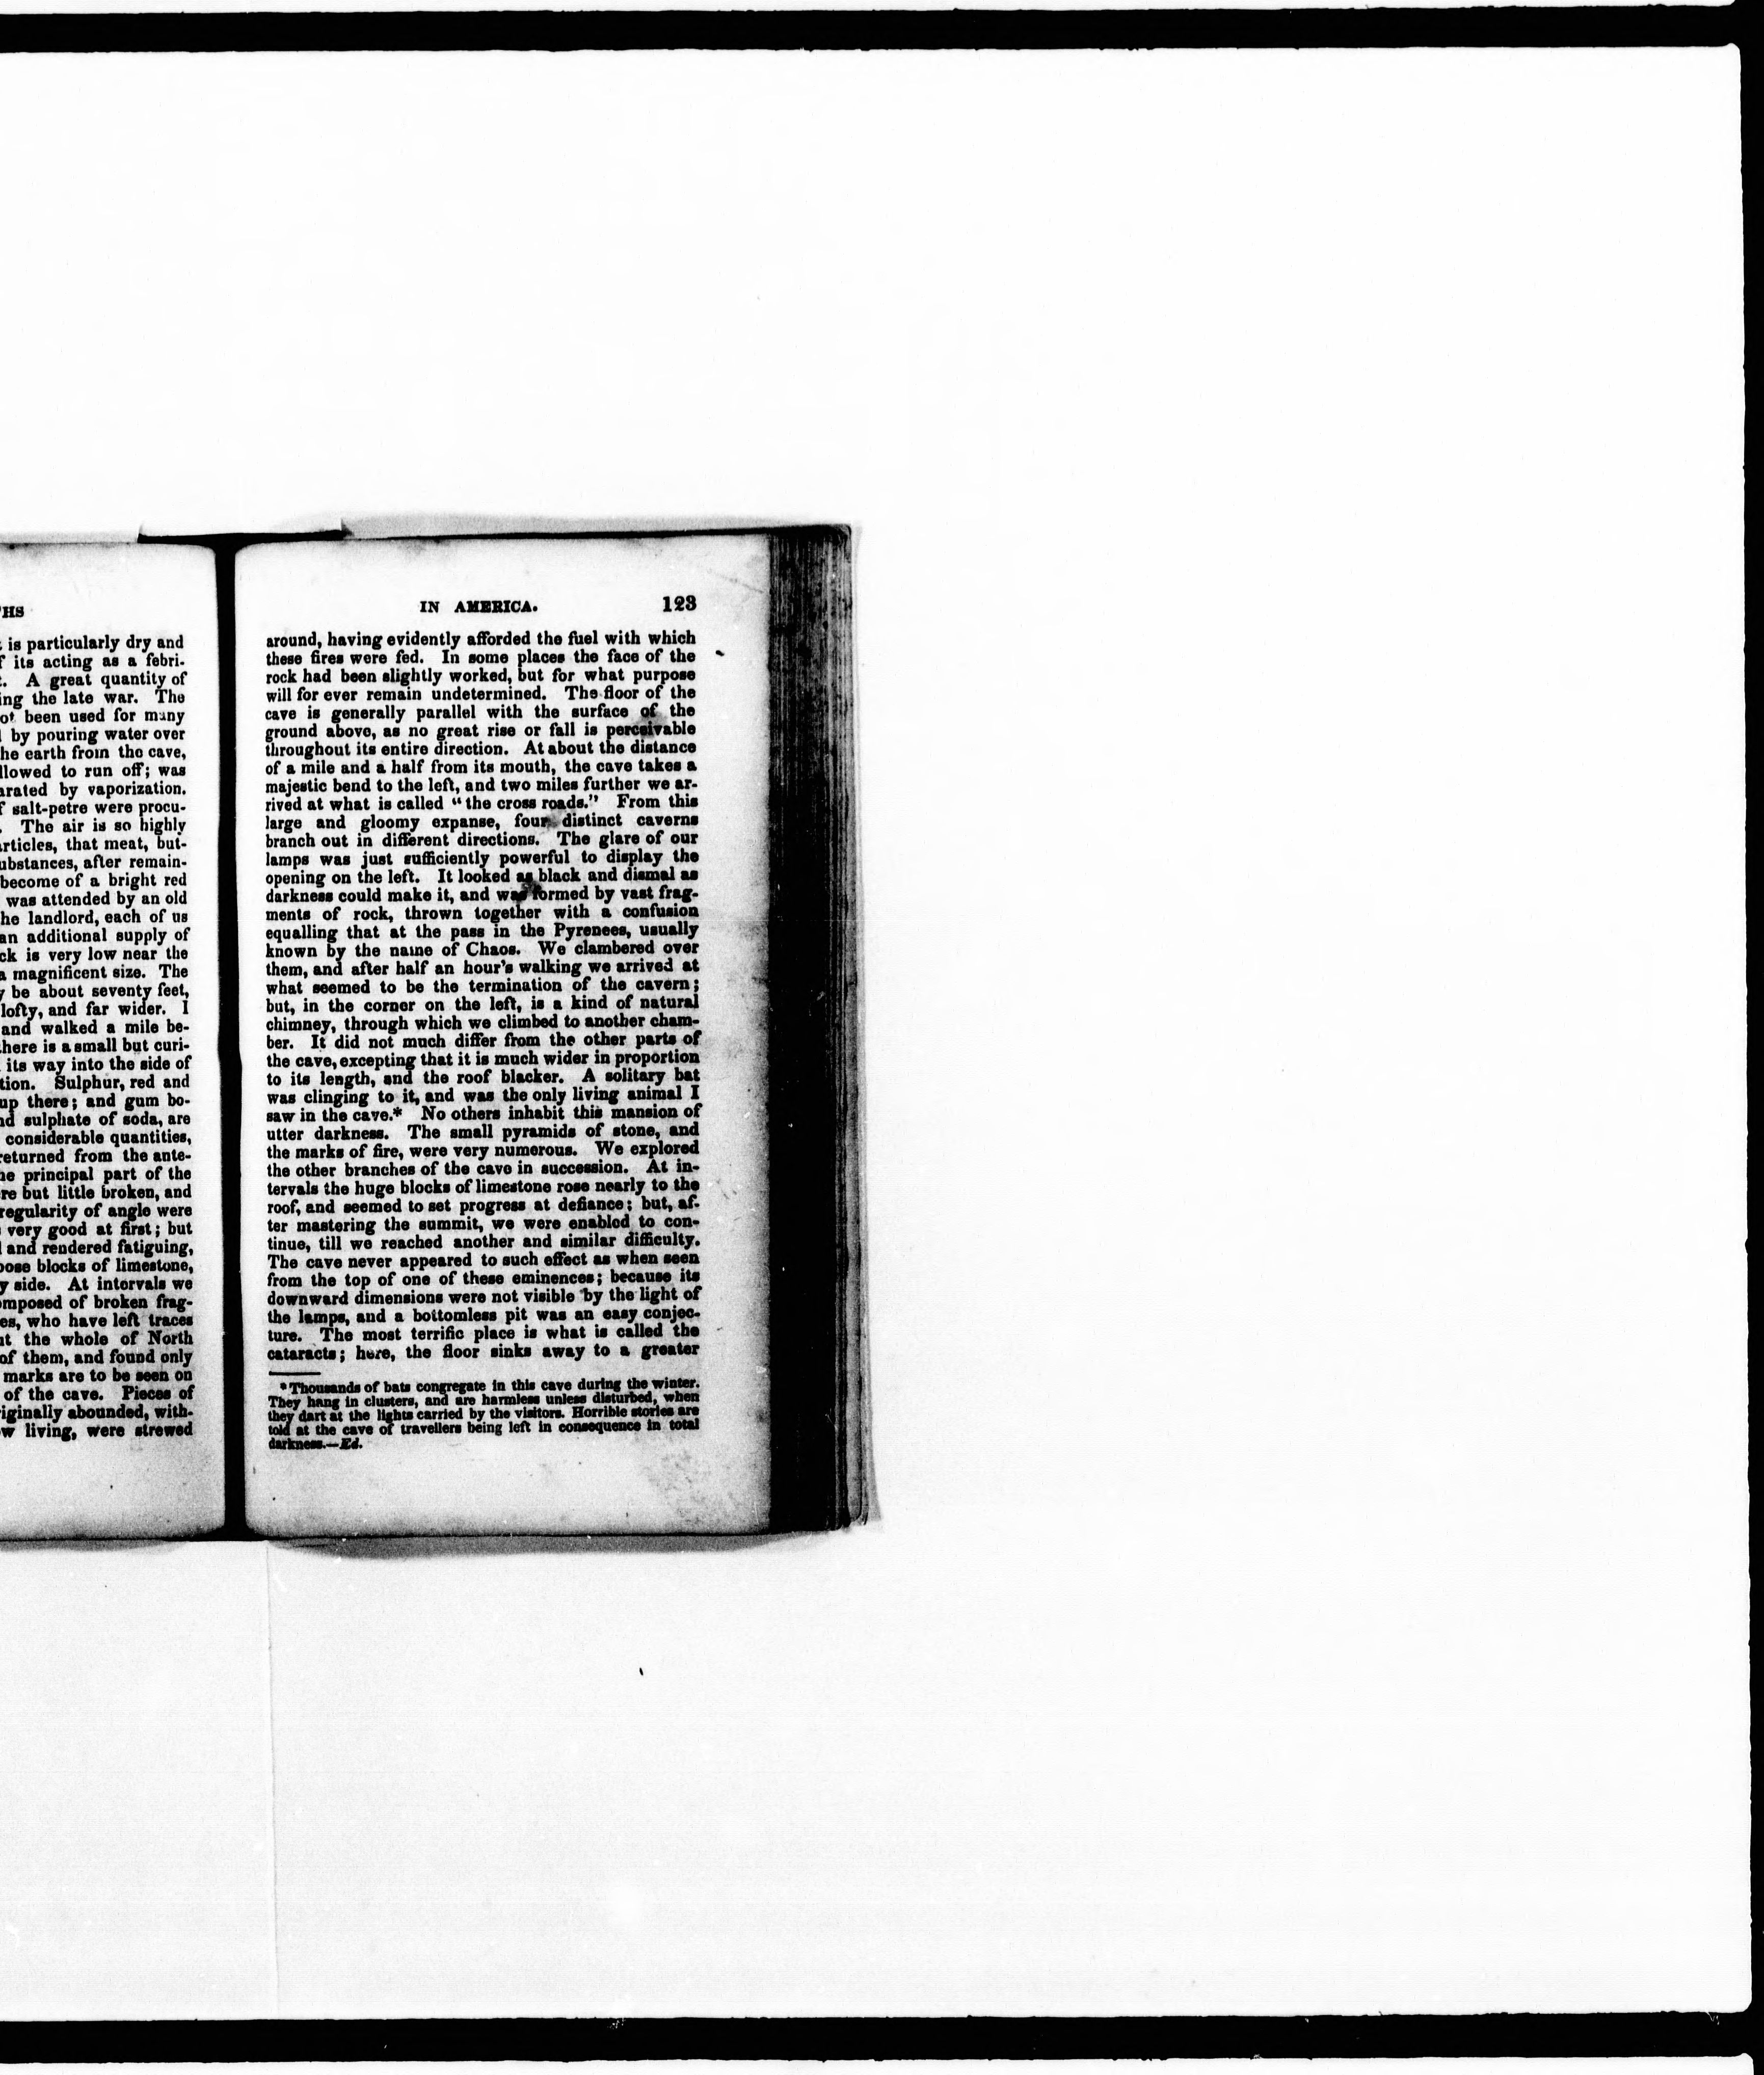 THS
is particularly dry and
its acting as a febri-
A great quantity of
ing the late war. The
been used for many
by pouring water over
he earth from the cave,
llowed to run off; was
arated by vaporization.
salt-petre were procu-
The air is so highly
articles, that meat, but-
ubstances, after remain-
become of a bright red
was attended by an old
he landlord, each of us
an additional supply of
ck is very low near the
a magnificent size. The
y be about seventy feet,
lofty, and far wider. I
and walked a mile be-
there is a small but curi-
its way into the side of
tion. Sulphur, red and
up there; and gum bo-
nd sulphate of soda, are
considerable quantities,
returned from the ante-
he principal part of the
re but little broken, and
regularity of angle were
very good at first; but
and rendered fatiguing,
oose blocks of limestone,
y side. At intervals we
omposed of broken frag-
es, who have left traces
ut the whole of North
of them, and found only
marks are to be seen on
of the cave. Pieces of
riginally abounded, with-
w living, were strewed
IN AMERICA. 123
around, having evidently afforded the fuel with which
these fires were fed. In some places the face of the
rock had been slightly worked, but for what purpose
will for ever remain undetermined. The floor of the
cave is generally parallel with the surface of the
ground above, as no great rise or fall is perceivable
throughout its entire direction. At about the distance
of a mile and a half from its mouth, the cave takes a
majestic bend to the left, and two miles further we ar-
rived at what is called "the cross roads." From this
large and gloomy expanse, four distinct caverns
branch out in different directions. The glare of our
lamps was just sufficiently powerful to display the
opening on the left. It looked as black and dismal as
darkness could make it, and was formed by vast frag-
ments of rock, thrown together with a confusion
equalling that at the pass in the Pyrenees, usually
known by the name of Chaos. We clambered over
them, and after half an hour's walking we arrived at
what seemed to be the termination of the cavern;
but, in the corner on the left, is a kind of natural
chimney, through which we climbed to another cham-
ber. It did not much differ from the other parts of
the cave, excepting that it is much wider in proportion
to its length, and the roof blacker. A solitary bat
was clinging to it, and was the only living animal I
saw in the cave.* No others inhabit this mansion of
utter darkness. The small pyramids of stone, and
the marks of fire, were very numerous. We explored
the other branches of the cave in succession. At in-
tervals the huge blocks of limestone rose nearly to the
roof, and seemed to set progress at defiance; but, af-
ter mastering the summit, we were enabled to con-
tinue, till we reached another and similar difficulty.
The cave never appeared to such effect as when seen
from the top of one of these eminences; because its
downward dimensions were not visible by the light of
the lamps, and a bottomless pit was an easy conjec-
ture. The most terrific place is what is called the
cataracts; here, the floor sinks away to a greater
*Thousands of bats congregate in this cave during the winter.
They hang in clusters, and are harmless unless disturbed, when
they dart at the lights carried by the visitors. Horrible stories are
told at the cave of travellers being left in consequence in total
darkness.—Ed.